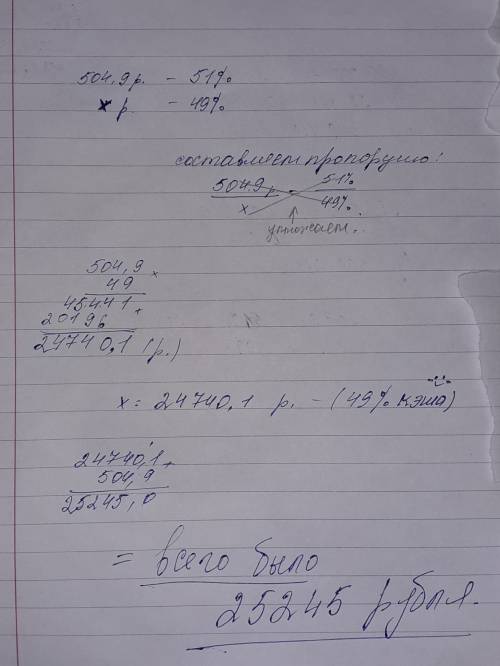 504,9 р. - 51%
х р. - 49%
составляем пропорцию:
504.9 р. - 51%
х 49%.
умножаем.
504,9 ×
49
45441 +
20196
24740,1 (р.)
х = 24740,1 р. - (49% кэша)
24740,1 +
504,9
25245,0
= всего было
25245 рубля.